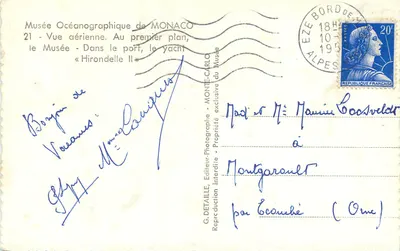 Musée Océanographique de MONACO
21 - Vue aérienne. Au premier plan,
le Musée - Dans le port, le yacht
« Hirondelle II »
Bonjour de
Vacances
G. DETAILLE, Editeur-Photographe - MONTE-CARLO
Reproduction interdite - Propriété exclusive du Musée
EZE BORD DE
18H
10-
195
ALPES
20F
REPUBLIQUE FRANÇAISE
et Mme Maurice Loosveldt
à
Montgaroult
par Ecouché (Orne)